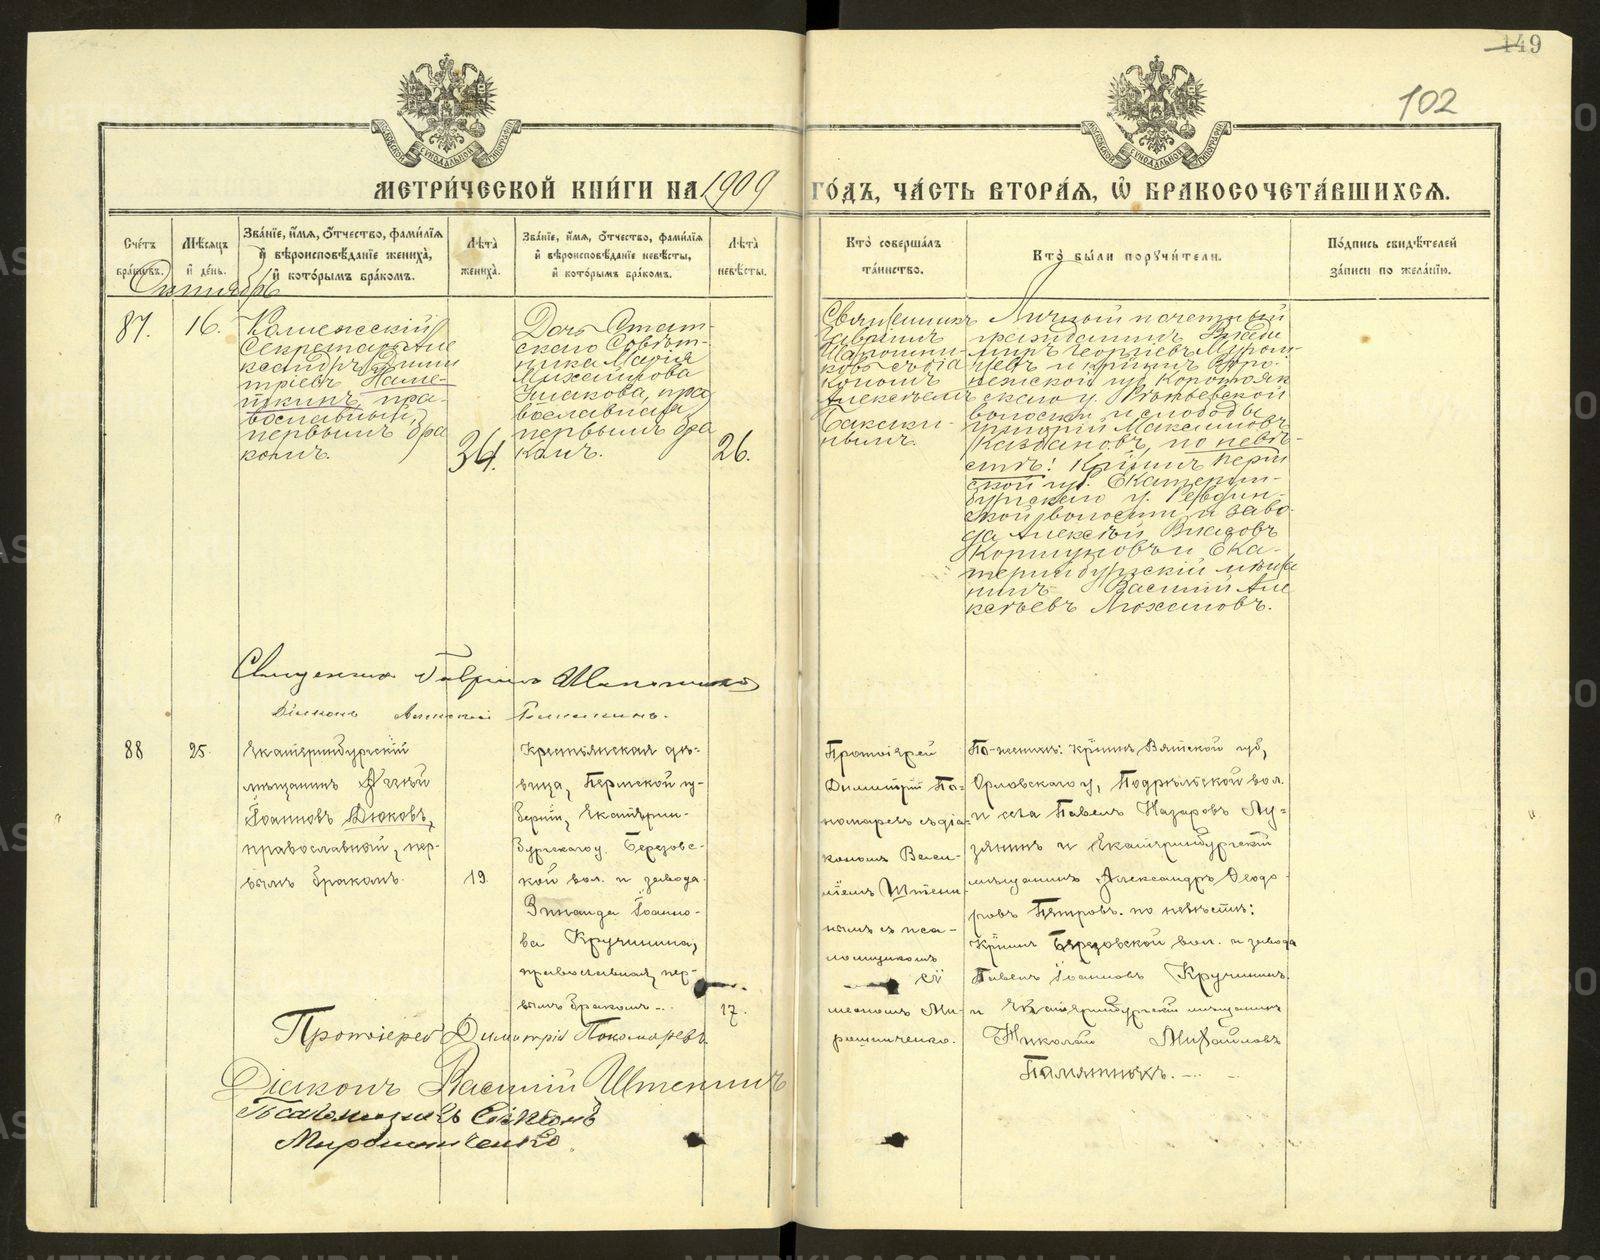 149
102
МЕТРИ́ЧЕСКОЙ КНИ́ГИ НА 1909 ГО́ДЪ, ЧА́СТЬ ВТОРА́Я, Ѡ҆ БРАКОСОЧЕТА́ВШИХСЯ.
Сче́тъ бра́ковъ.
Мѣ́сяцъ и҆ де́нь.
Зва́нїе, и҆́мѧ, ѻ҆́тчество, фами́лїѧ и҆ вѣроисповѣ́данїе жениха̀, и҆ кото́рымъ бра́комъ.
Лѣ́та жениха̀.
Зва́нїе, и҆́мѧ, ѻ҆́тчество, фами́лїѧ и҆ вѣроисповѣ́данїе невѣ́сты, и҆ кото́рымъ бра́комъ.
Лѣ́та невѣ́сты.
Кто̀ соверша́лъ та́инство.
Кто̀ бы́ли порꙋчи́тели.
По́дпись свидѣ́телей за́писи по жела́нїю.
Октябрь
87.
16.
Коллежскій
Секретарь Але
ксандръ Дими
тріевъ Наме-
ткинъ, пра-
вославный,
первымъ бра
комъ.
34.
Дочь Стат-
скаго Совѣт-
ника Марія
Михайлова
православная,
первымъ бра
комъ.
26.
Священникъ
Гавріилъ
Шапошни-
ковъ съ діа
кономъ
Алексѣемъ
Личный почетный
гражданинъ Влади
міръ Георгіевъ
и кр‑нинъ Воро-
нежской губ. Коротояк
скаго у.
волости и слободы
Григорій Максимовъ
по невѣ-
стѣ: Кр‑нинъ Перм
ской губ. Екатерин-
бургскаго у. Ревдин-
ской волости и заво-
да Алексѣй Власовъ
Коршуновъ и Ека-
теринбургскій мѣща
нинъ Василій Але
ксѣевъ
Священникъ Гавріилъ Шапошниковъ
Діаконъ Алексѣй
88
25
Екатеринбургскій
мѣщанинъ
Іоанновъ Дюковъ,
православный, пер-
вымъ бракомъ.
19
Крестьянская дѣ-
вица, Пермской гу-
берніи, Екатерин-
бургскаго у. Березовс-
кой вол. и завода
Зинаида Іоанно-
ва Кручинина,
православная, пер-
вымъ бракомъ...
17.
Протоіерей
Димитрій По-
номаревъ съ діа-
кономъ Васи-
ліемъ Штени-
нымъ и пса-
ломщикомъ
Ми-
рошниченко.
По женихѣ: кр‑нинъ Вятской губ,
Орловскаго у, Подрѣльской вол.
и села Павелъ Назаровъ Лу-
зянинъ и Екатеринбургскій
мѣщанинъ Александръ Ѳеодо-
ровъ Петровъ. по невѣстѣ:
кр‑нинъ Березовской вол. и завода
Павелъ Іоанновъ Кручининъ
и Екатеринбургскій мѣщанинъ
Николай Михайловъ
Памятныхъ.
Протоіерей Димитрій Пономаревъ.
Діаконъ Василій Штенинъ
Псаломщикъ Симеонъ
Мирошниченко.
METRIKI.GASO-URAL.RU